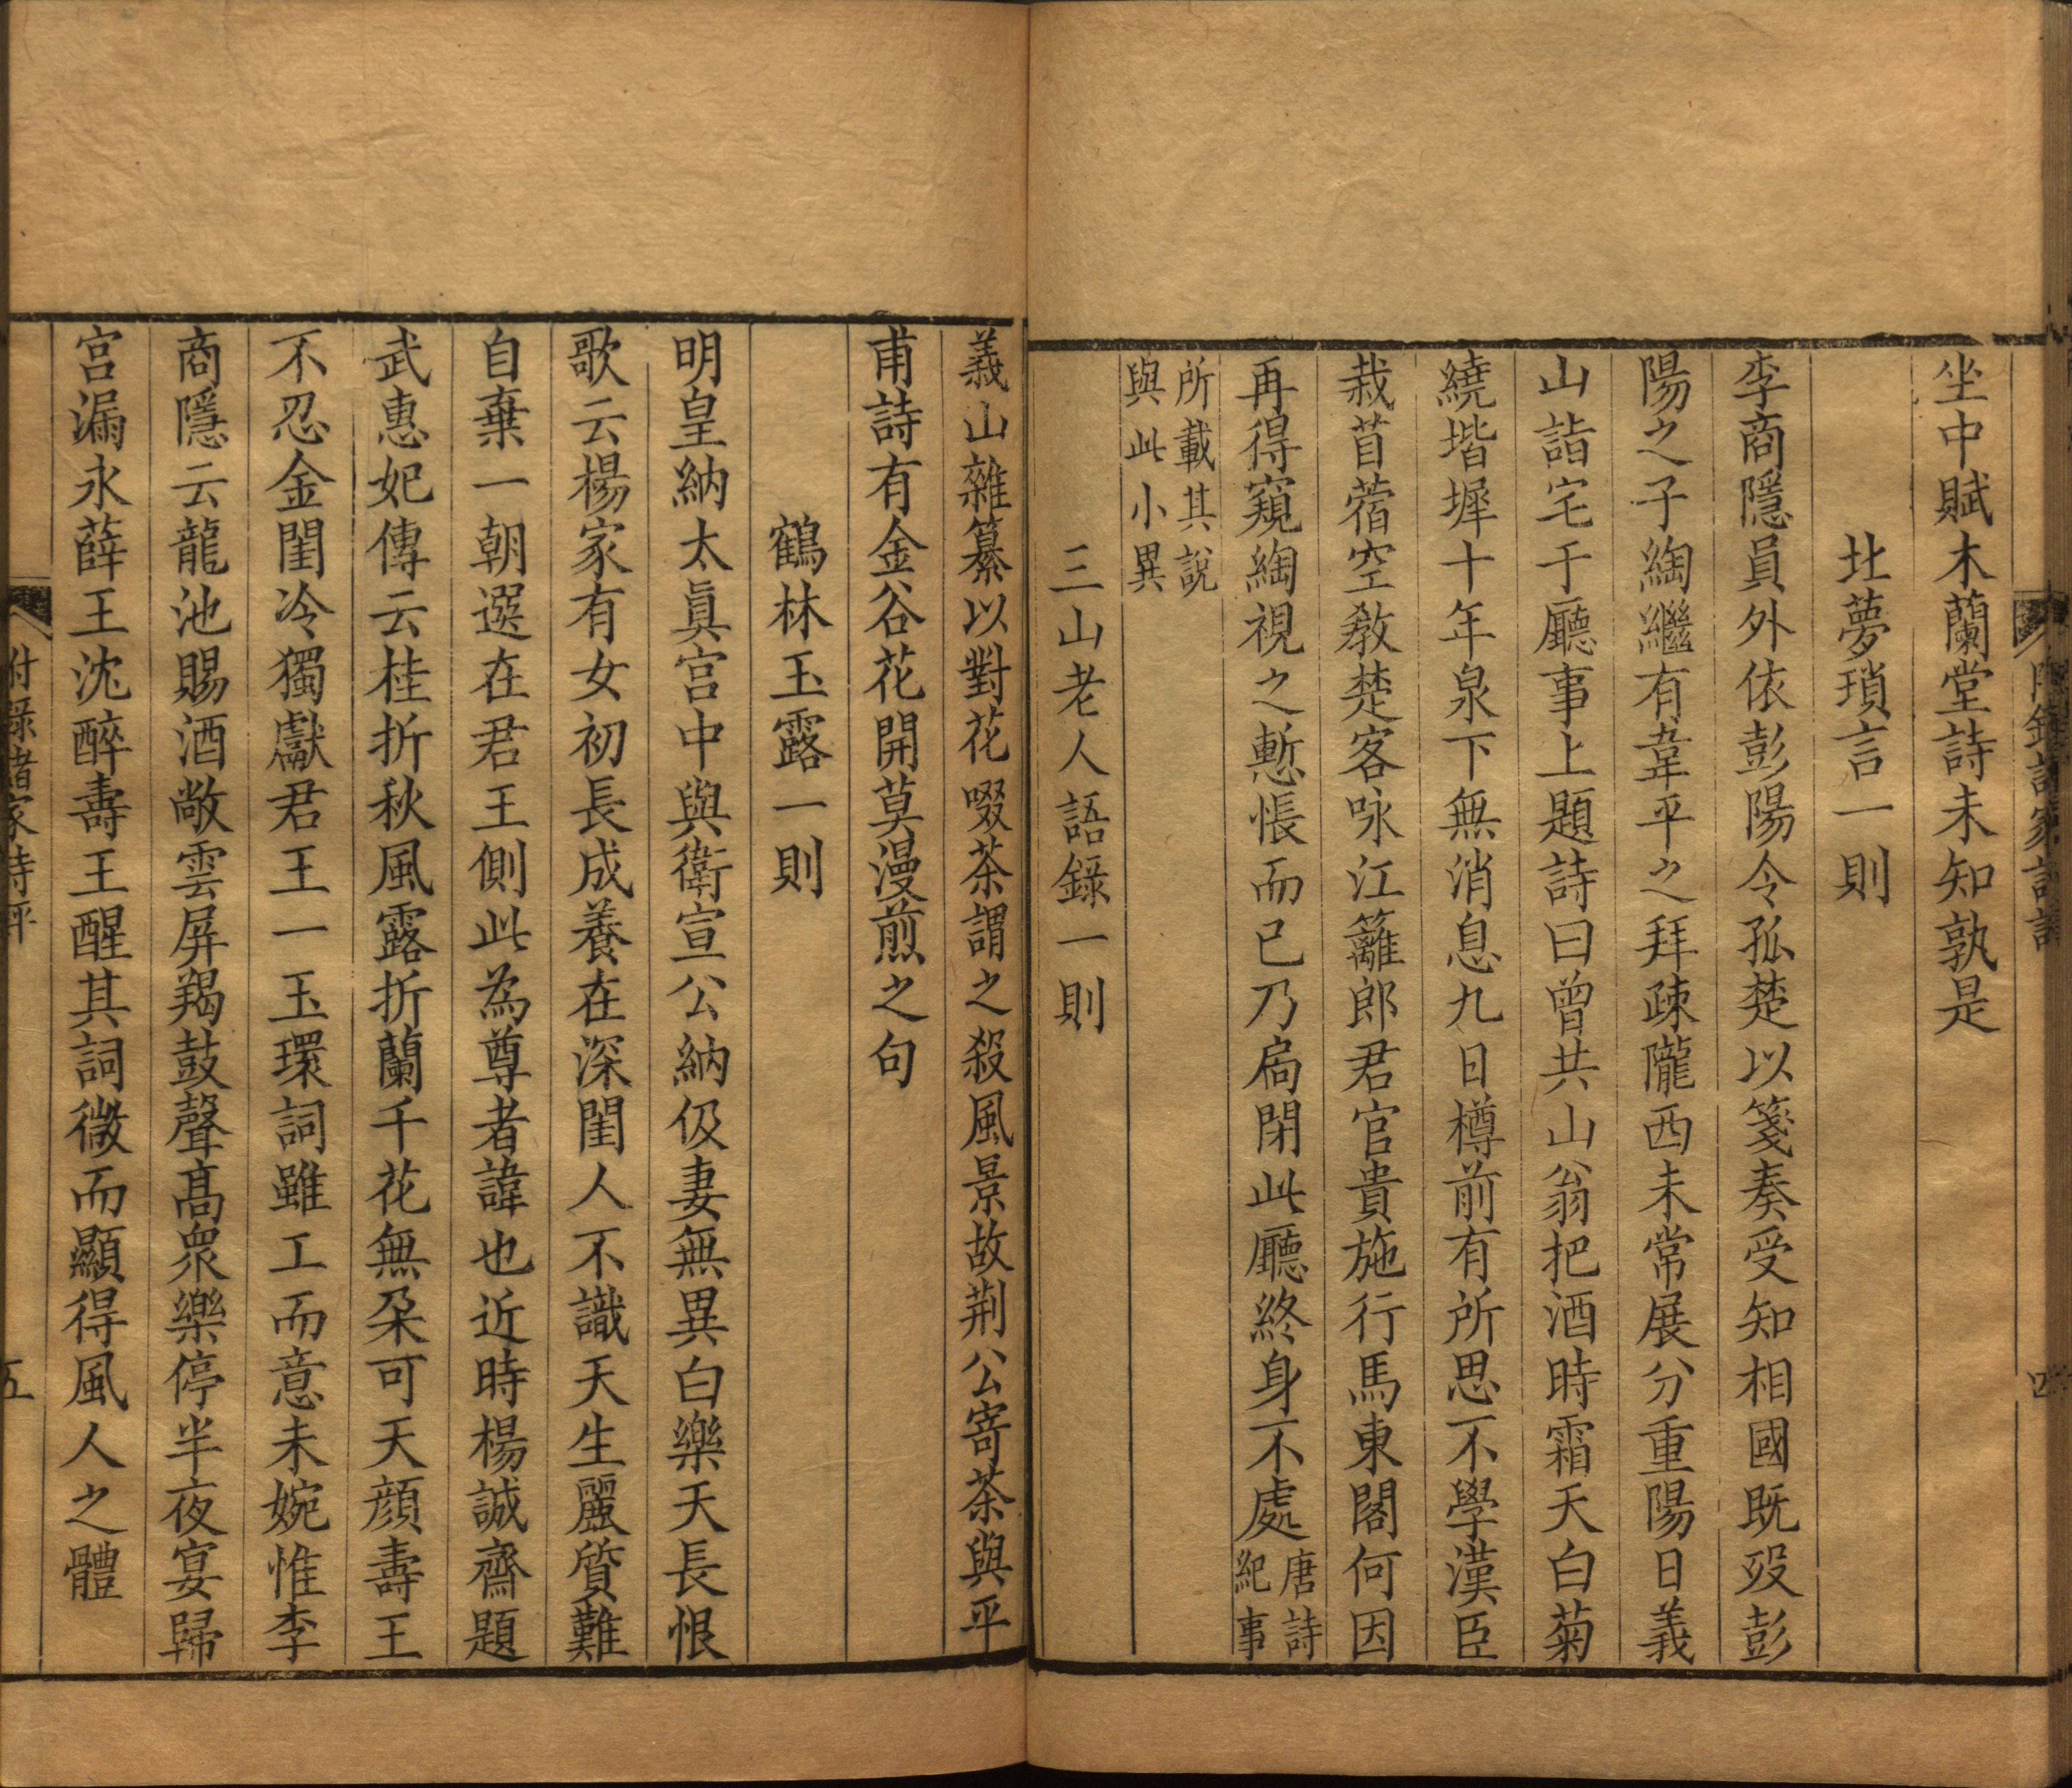 坐中賦木蘭堂詩未知孰是
北夢瑣言一則
李商隱員外依彭陽令孤楚以箋奏受知相國既歿彭
陽之子綯繼有韋平之拜疎隴西未常展分重陽日義
山詣宅于廳事上題詩曰曾共山翁把酒時霜天白菊
繞堦墀十年泉下無消息九日樽前有所思不學漢臣
栽苜蓿空教楚客咏江籬郎君官貴施行馬東閣何因
再得窺綯視之慙悵而已乃扃閉此廳終身不處唐詩
紀事
所載其說
與此小異
三山老人語錄一則
義山雜纂以對花啜茶謂之殺風景故荆公寄茶與平
甫詩有金谷花開莫漫煎之句
鶴林玉露一則
明皇納太眞宮中與衛宣公納伋妻無異白樂天長恨
歌云楊家有女初長成養在深閨人不識天生麗質難
自棄一朝選在君王側此為尊者諱也近時楊誠齋題
武惠妃傳云桂折秋風露折蘭千花無朶可天顔壽王
不忍金閨冷獨獻君王一玉環詞雖工而意未婉惟李
商隱云龍池賜酒敞雲屏羯鼓聲高衆樂停半夜宴歸
宮漏永薛王沈醉壽王醒其詞微而顯得風人之體
附錄諸家詩評
五